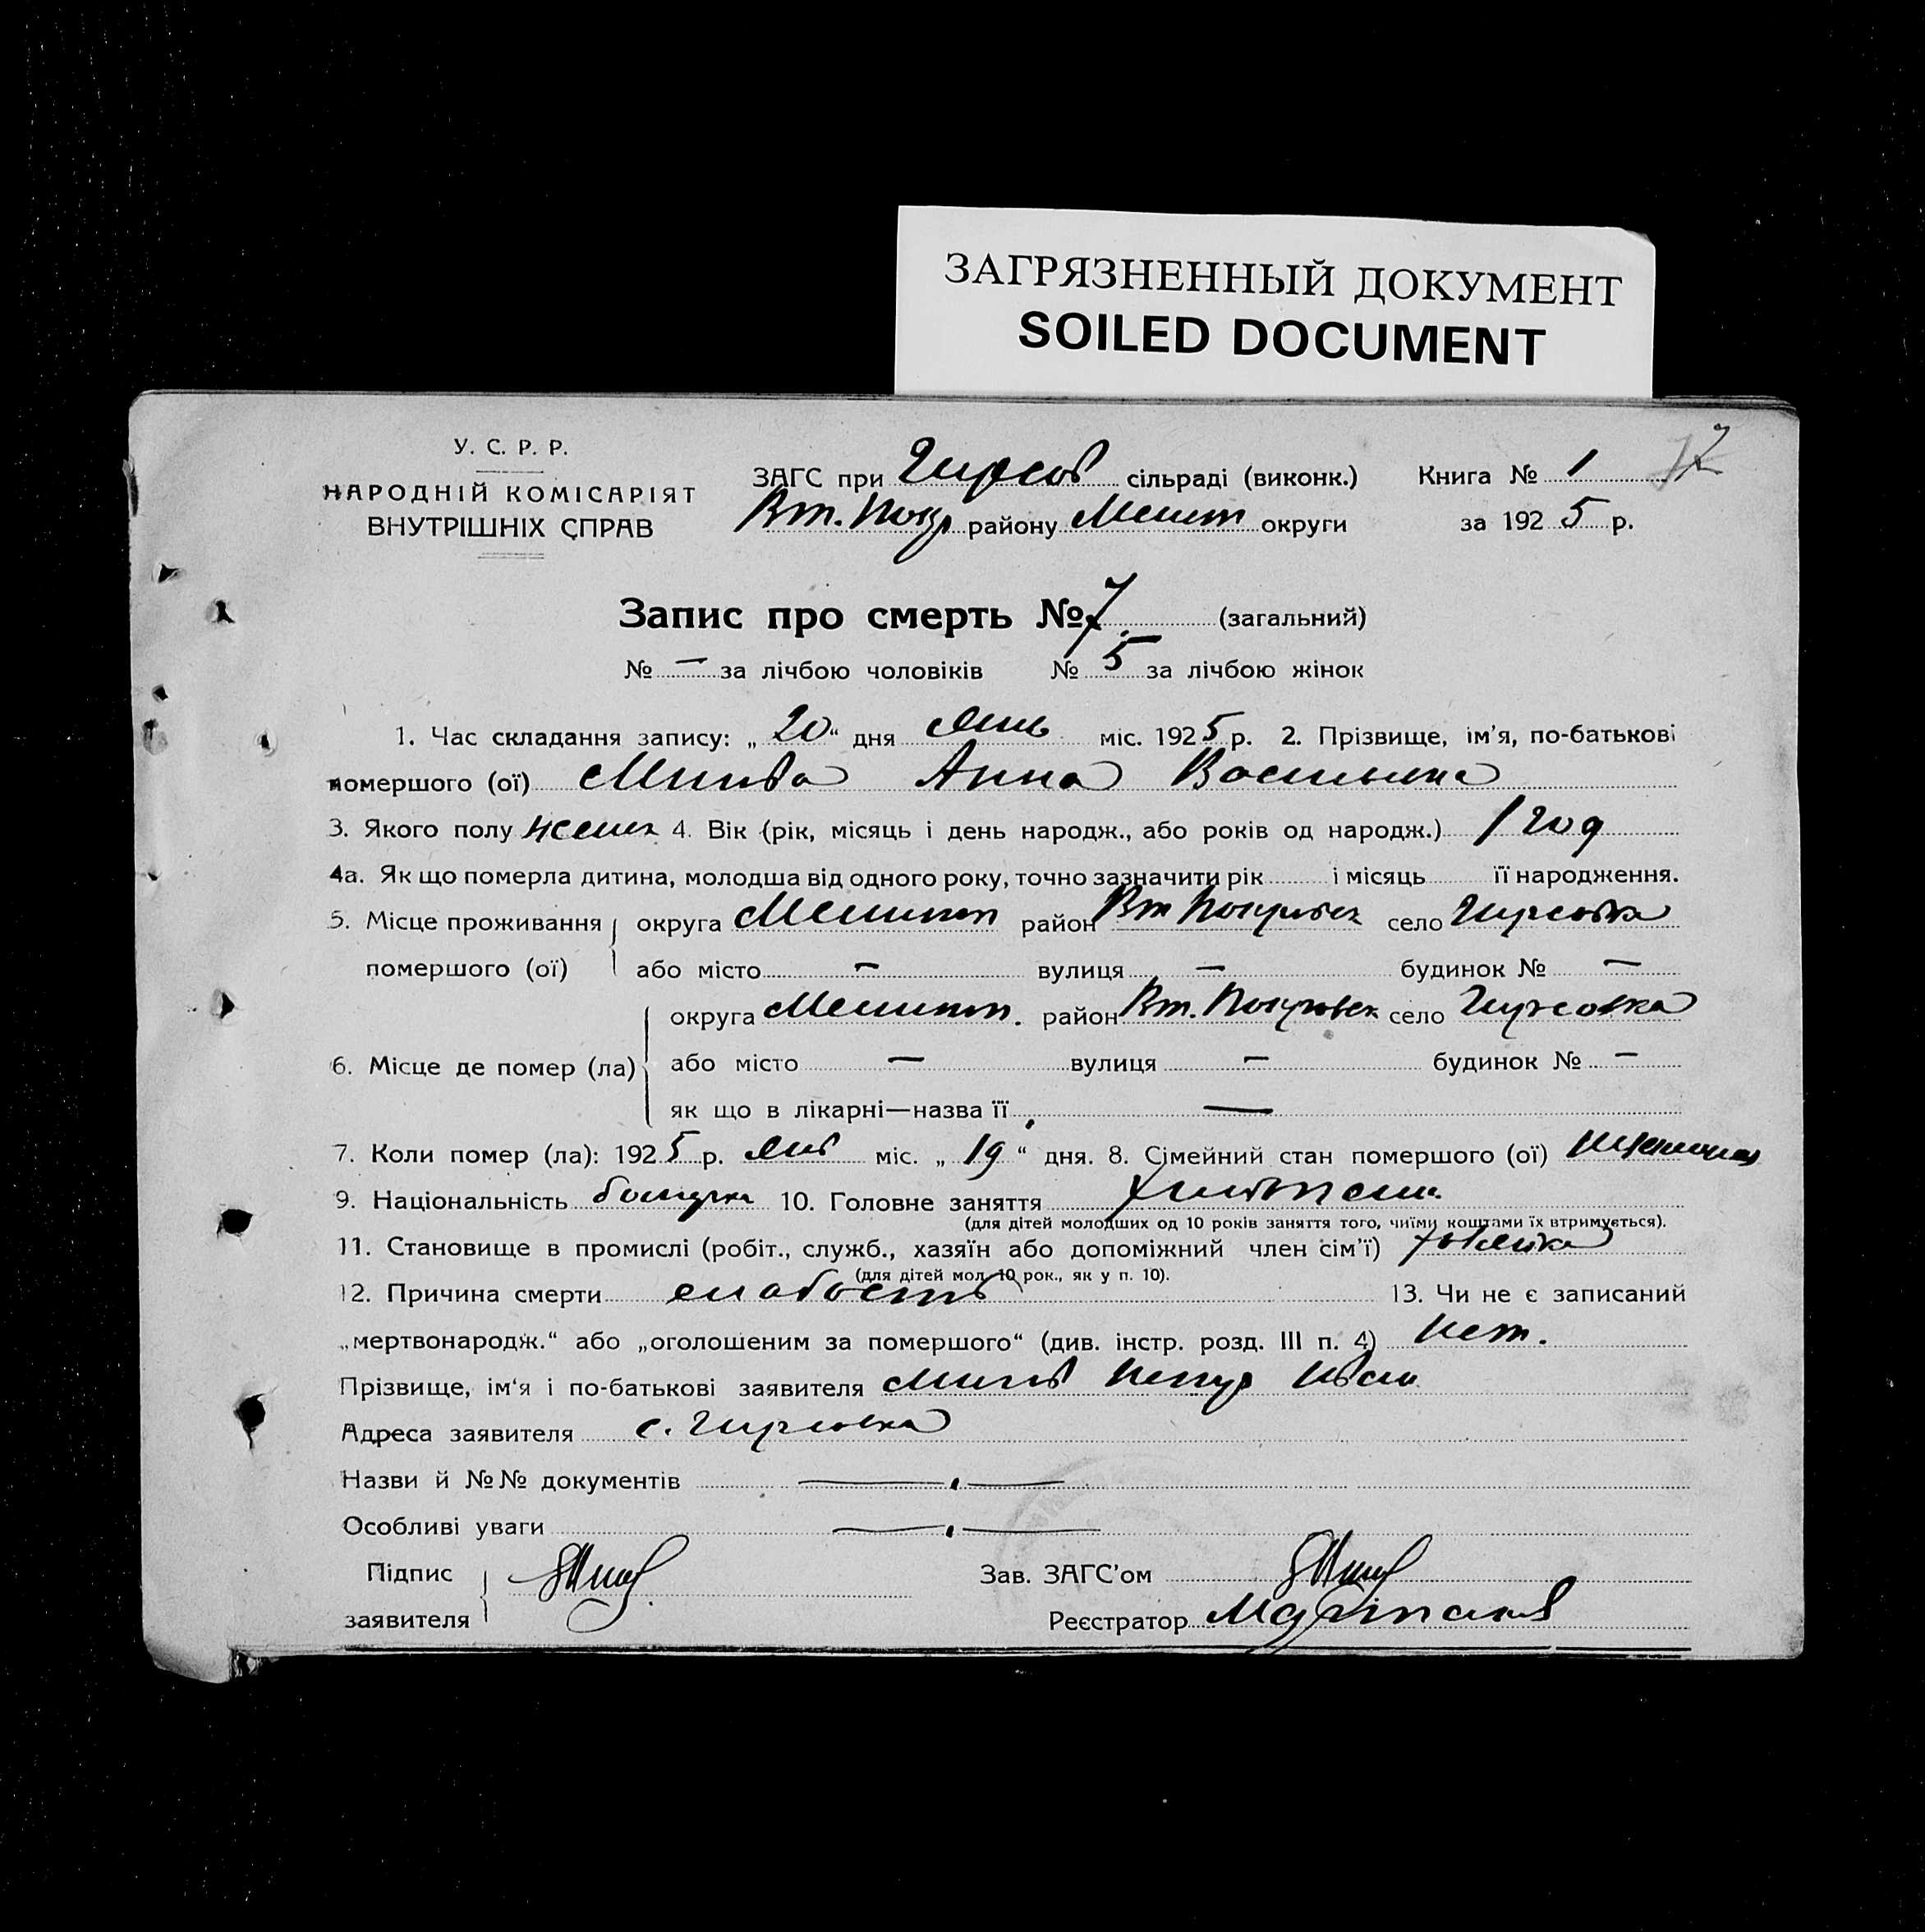 ЗАГРЯЗНЕННЫЙ ДОКУМЕНТ
SOILED DOCUMENT
У. С. Р. Р.
НАРОДНІЙ КОМІСАРІЯТ
ВНУТРІШНІХ СПРАВ
ЗАГС при Гирсов сільраді (виконк.)
Вт. Покр району Мелит округи
Книга № 1
за 1925 р.
Запис про смерть № 7. (загальний)
№ — за лічбою чоловіків № 5 за лічбою жінок
1. Час складання запису: „20“ дня Янв міс. 1925 р. 2. Прізвище, ім'я, по-батькові
помершого (ої) Митва Анна Васильевна
3. Якого полу женск 4. Вік (рік, місяць і день народж., або років од народж.) 1 год
4а. Як що померла дитина, молодша від одного року, точно зазначити рік і місяць її народження.
5. Місце проживання округа Мелитоп район Вт Покровск село Гирсовка
помершого (ої) або місто — вулиця — будинок № —
округа Мелитоп. район Вт. Покровск село Гирсовка
6. Місце де помер (ла) або місто — вулиця — будинок № —
як що в лікарні—назва її —
7. Коли помер (ла): 1925 р. Янв міс. „19“ дня. 8. Сімейний стан помершого (ої)
9. Національність болгарка 10. Головне заняття хлебопаш.
(для дітей молодших од 10 років заняття того, чиїми коштами їх втримується).
11. Становище в промислі (робіт., служб., хазяїн або допоміжний член сім'ї) хозяйка
(для дітей мол. 10 рок., як у п. 10).
12. Причина смерти слабость 13. Чи не є записаний
„мертвонародж.“ або „оголошеним за помершого“ (див. інстр. розд. III п. 4) Нет.
Прізвище, ім'я і по-батькові заявителя Митв Петр Иван
Адреса заявителя с. Гирсовка
Назви й №№ документів —
Особливі уваги —
Підпис
заявителя
Зав. ЗАГС'ом
Реєстратор